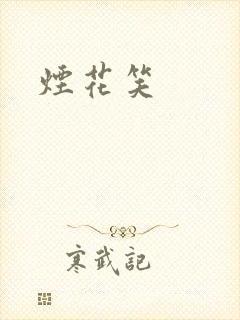 煙花笑
寒武記